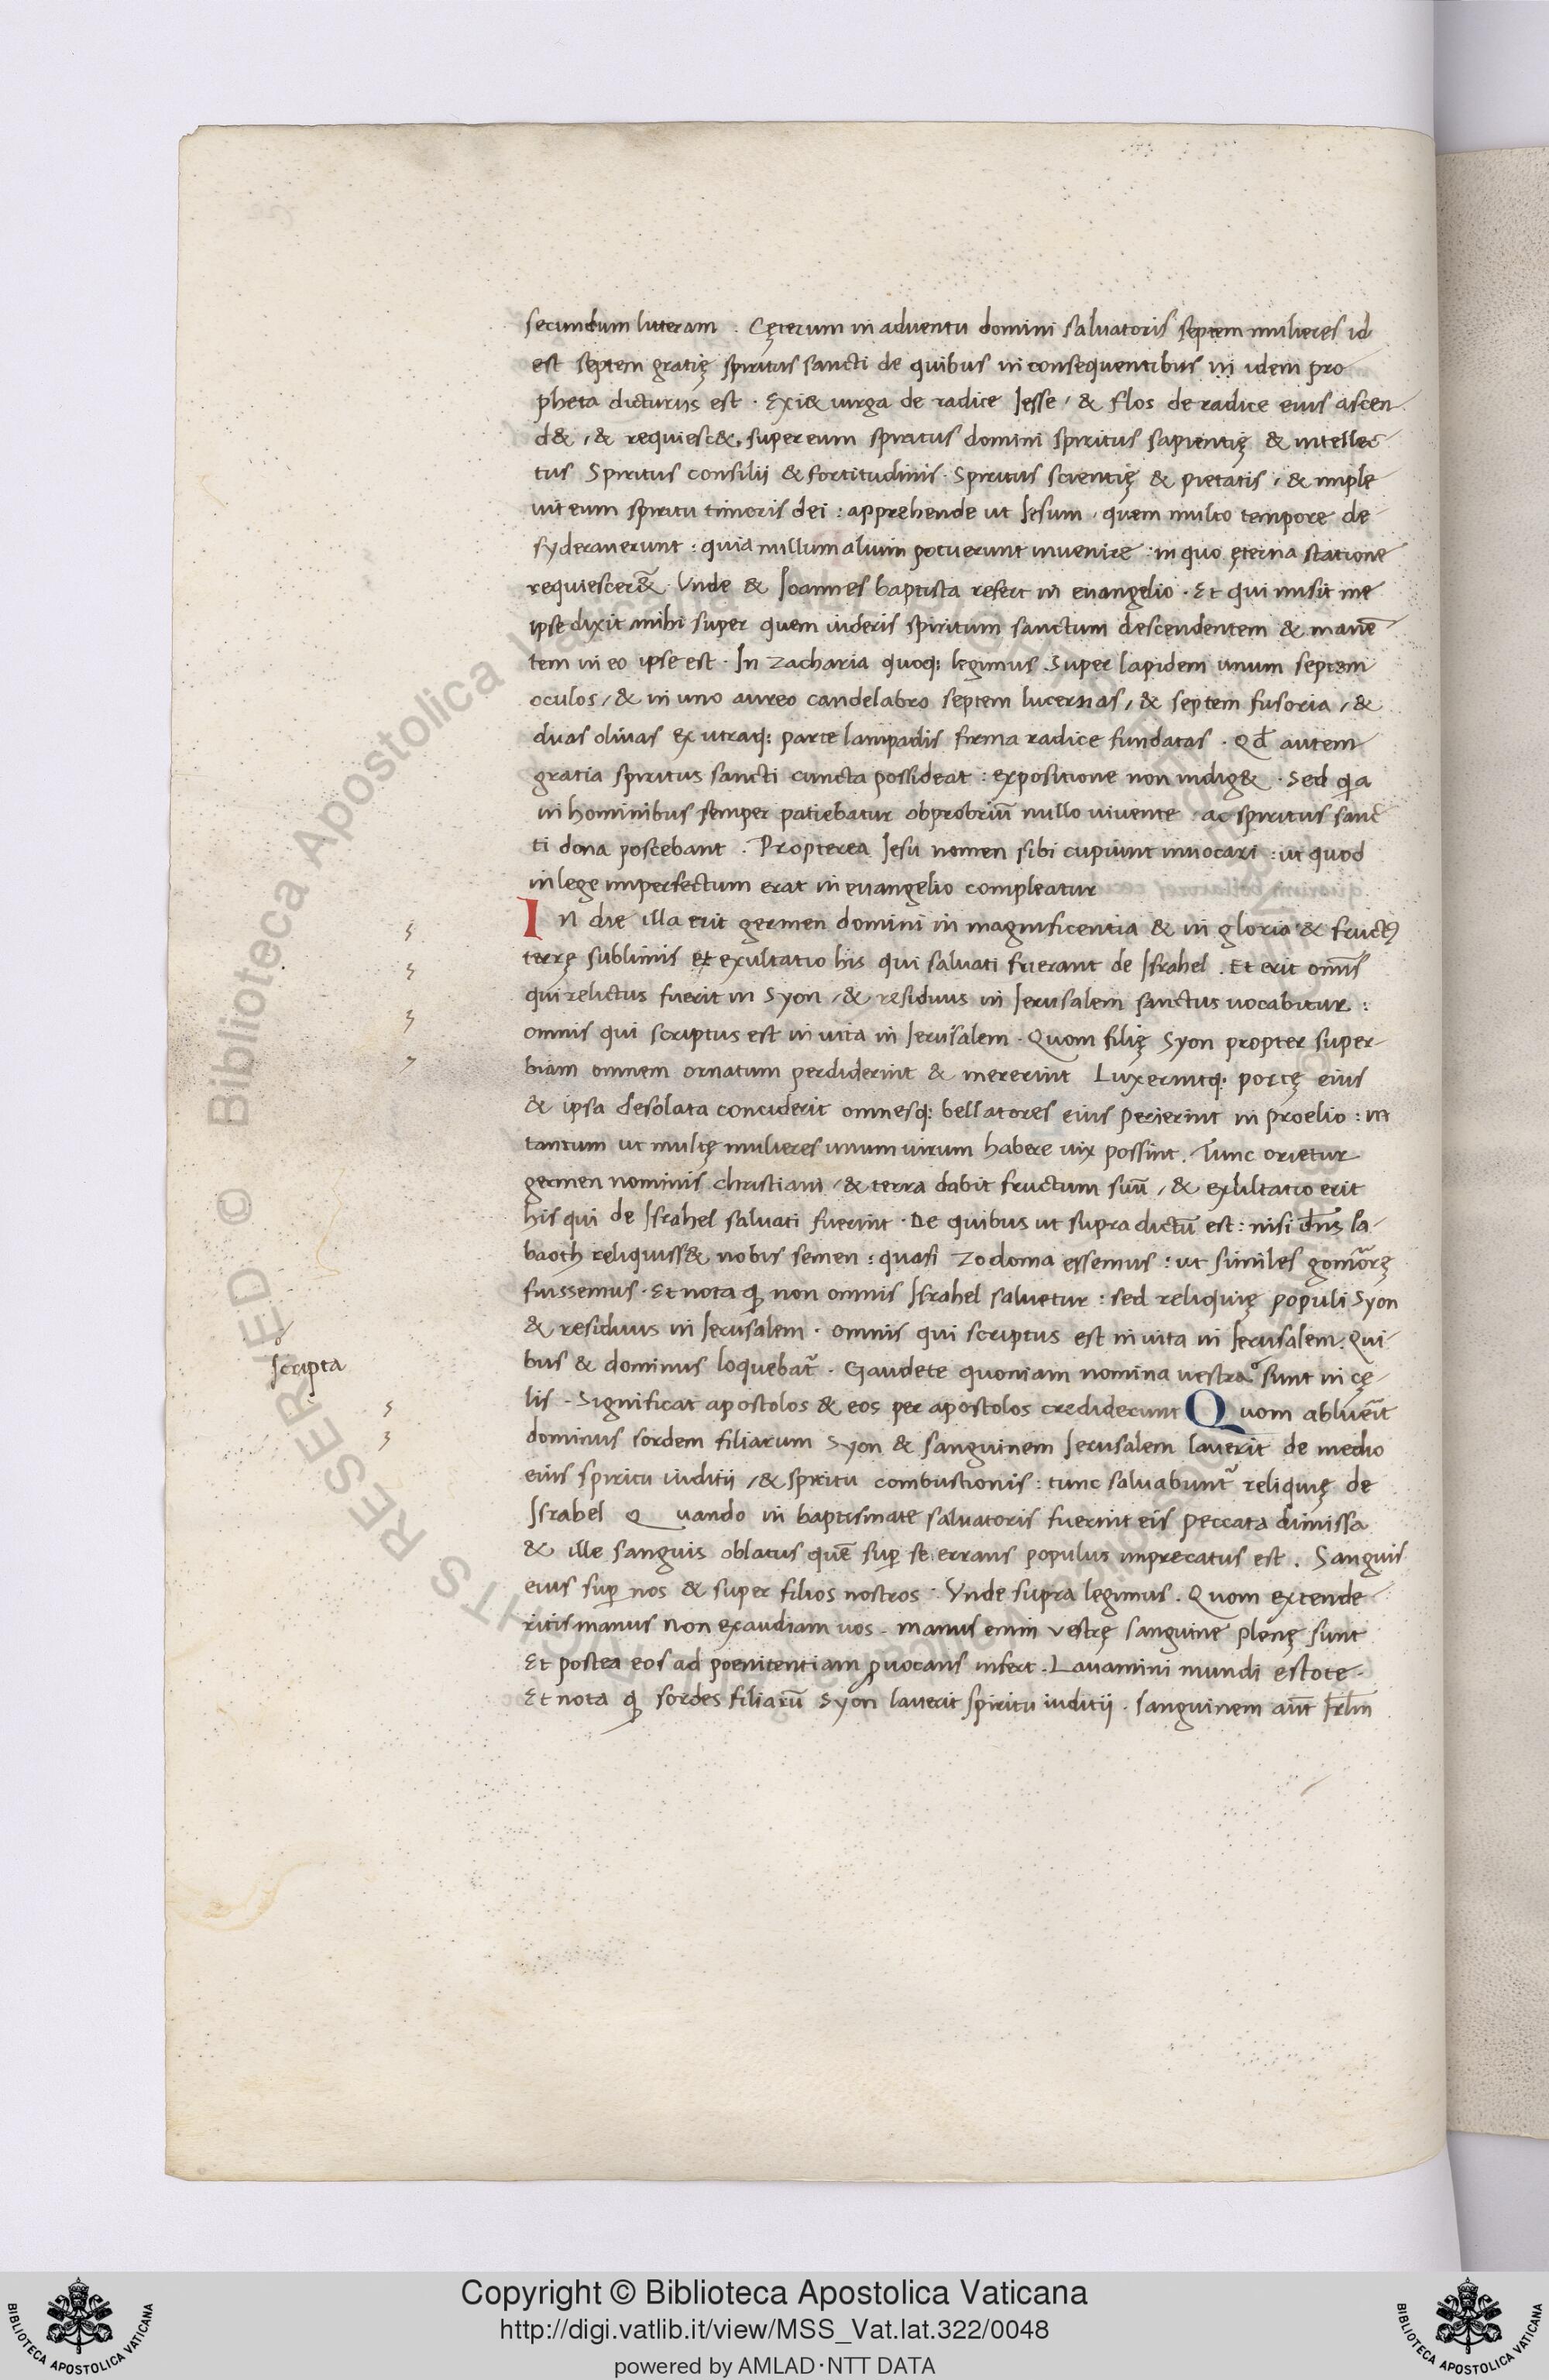 secundum litteram . Cęterum in adventu domini salvatoris septem mulieres id
est septem gratię spiritus sancti de quibus in consequentibus in idem pro
pheta dicturus est . Exi& virga de radice Jesse / & flos de radice eius ascen
d& , & requiesc& super eum spiritus domini spiritus sapientię & intellec
tus Spiritus consilii & fortitudinis . Spiritus scientię & pietatis , & imple
vit eum spiritu timoris dei : apprehende ut Jesum . quem multo tempore de
syderaverunt : quia nullum alium potuerunt invenire : in quo ęterna statione
requiescer& . Unde & Joannes baptista refert in evangelio . Et qui misit me
ipse dixit mihi super quem videris spiritum sanctum descendentem & manē
tem in eo ipse est . In Zacharia quoq; legimus Super lapidem unum septem
oculos , & in uno aureo candelabro septem lucernas , & septem fusoria , &
duas olivas ex utraq; parte lampadis firma radice fundatas . Qđ autem
gratia spiritus sancti cuncta possideat : expositione non indig& . Sed qa
in hominibus semper patiebatur obprobriū nullo vivente . ac spiritus sanc
ti dona poscebant . Propterea Jesu nomen sibi cupiunt invocari : ut quod
in lege imperfectum erat in evangelio compleatur
In die illa erit germen domini in magnificentia & in gloria & fructꝰ
terrę sublimis et exultatio his qui salvati fuerant de Israhel . Et erit omīs
qui relictus fuerit in Syon , & residuus in Jerusalem sanctus vocabitur :
omnis qui scriptus est in vita in Jerusalem . Quom filię Syon propter super
biam omnem ornatum perdiderint & mererint Luxerintq; portę eius
& ipsa desolata conciderit omnesq; bellatores eius perierint in proelio : in
tantum ut multę mulieres unum virum habere vix possint . Tunc orietur
germen nominis christiani , & terra dabit fructum suū , & exultatio erit
his qui de Israhel salvati fuerint . De quibus ut supra dictū est : nisi dn̄s sa
baoth reliquiss& nobis semen : quasi Zodoma essemus : ut similes gomorę
fuissemus . Et nota ꝙ non omnis Israhel salvetur : sed reliquię populi Syon
& residuus in Jerusalem . omnis qui scriptus est in vita in Jerusalem . Qui
bus & dominus loquebat̄ . Gaudete quoniam nomina vestra sunt in cę
scripta
lis . Significat apostolos & eos per apostolos crediderunt Quom abluerit
dominus sordem filiarum Syon & sanguinem Jerusalem laverit de medio
eius spiritu iuditii , & spiritu combustionis : tunc salvabunt̄ reliquię de
Israhel Quando in baptismate salvatoris fuerint eis peccata dimissa
& ille sanguis oblatus quē suꝑ se errans populus imprecatus est . Sanguis
eius suꝑ nos & super filios nostros . Unde supra legimus . Quom extende
ritis manus non exaudiam vos . manus enim vestrę sanguine plenę sunt
Et postea eos ad poenitentiam ꝓvocans infert . Lavamini mundi estote .
Et nota ꝙ sordes filiarū Syon laverit spiritu iuditii . sanguinem aūt Irlm̄
RESERVED © Biblioteca Apostolica Vaticana
Copyright © Biblioteca Apostolica Vaticana
http://digi.vatlib.it/view/MSS_Vat.lat.322/0048
powered by AMLAD·NTT DATA
BIBLIOTECA APOSTOLICA VATICANA
BIBLIOTECA APOSTOLICA VATICANA